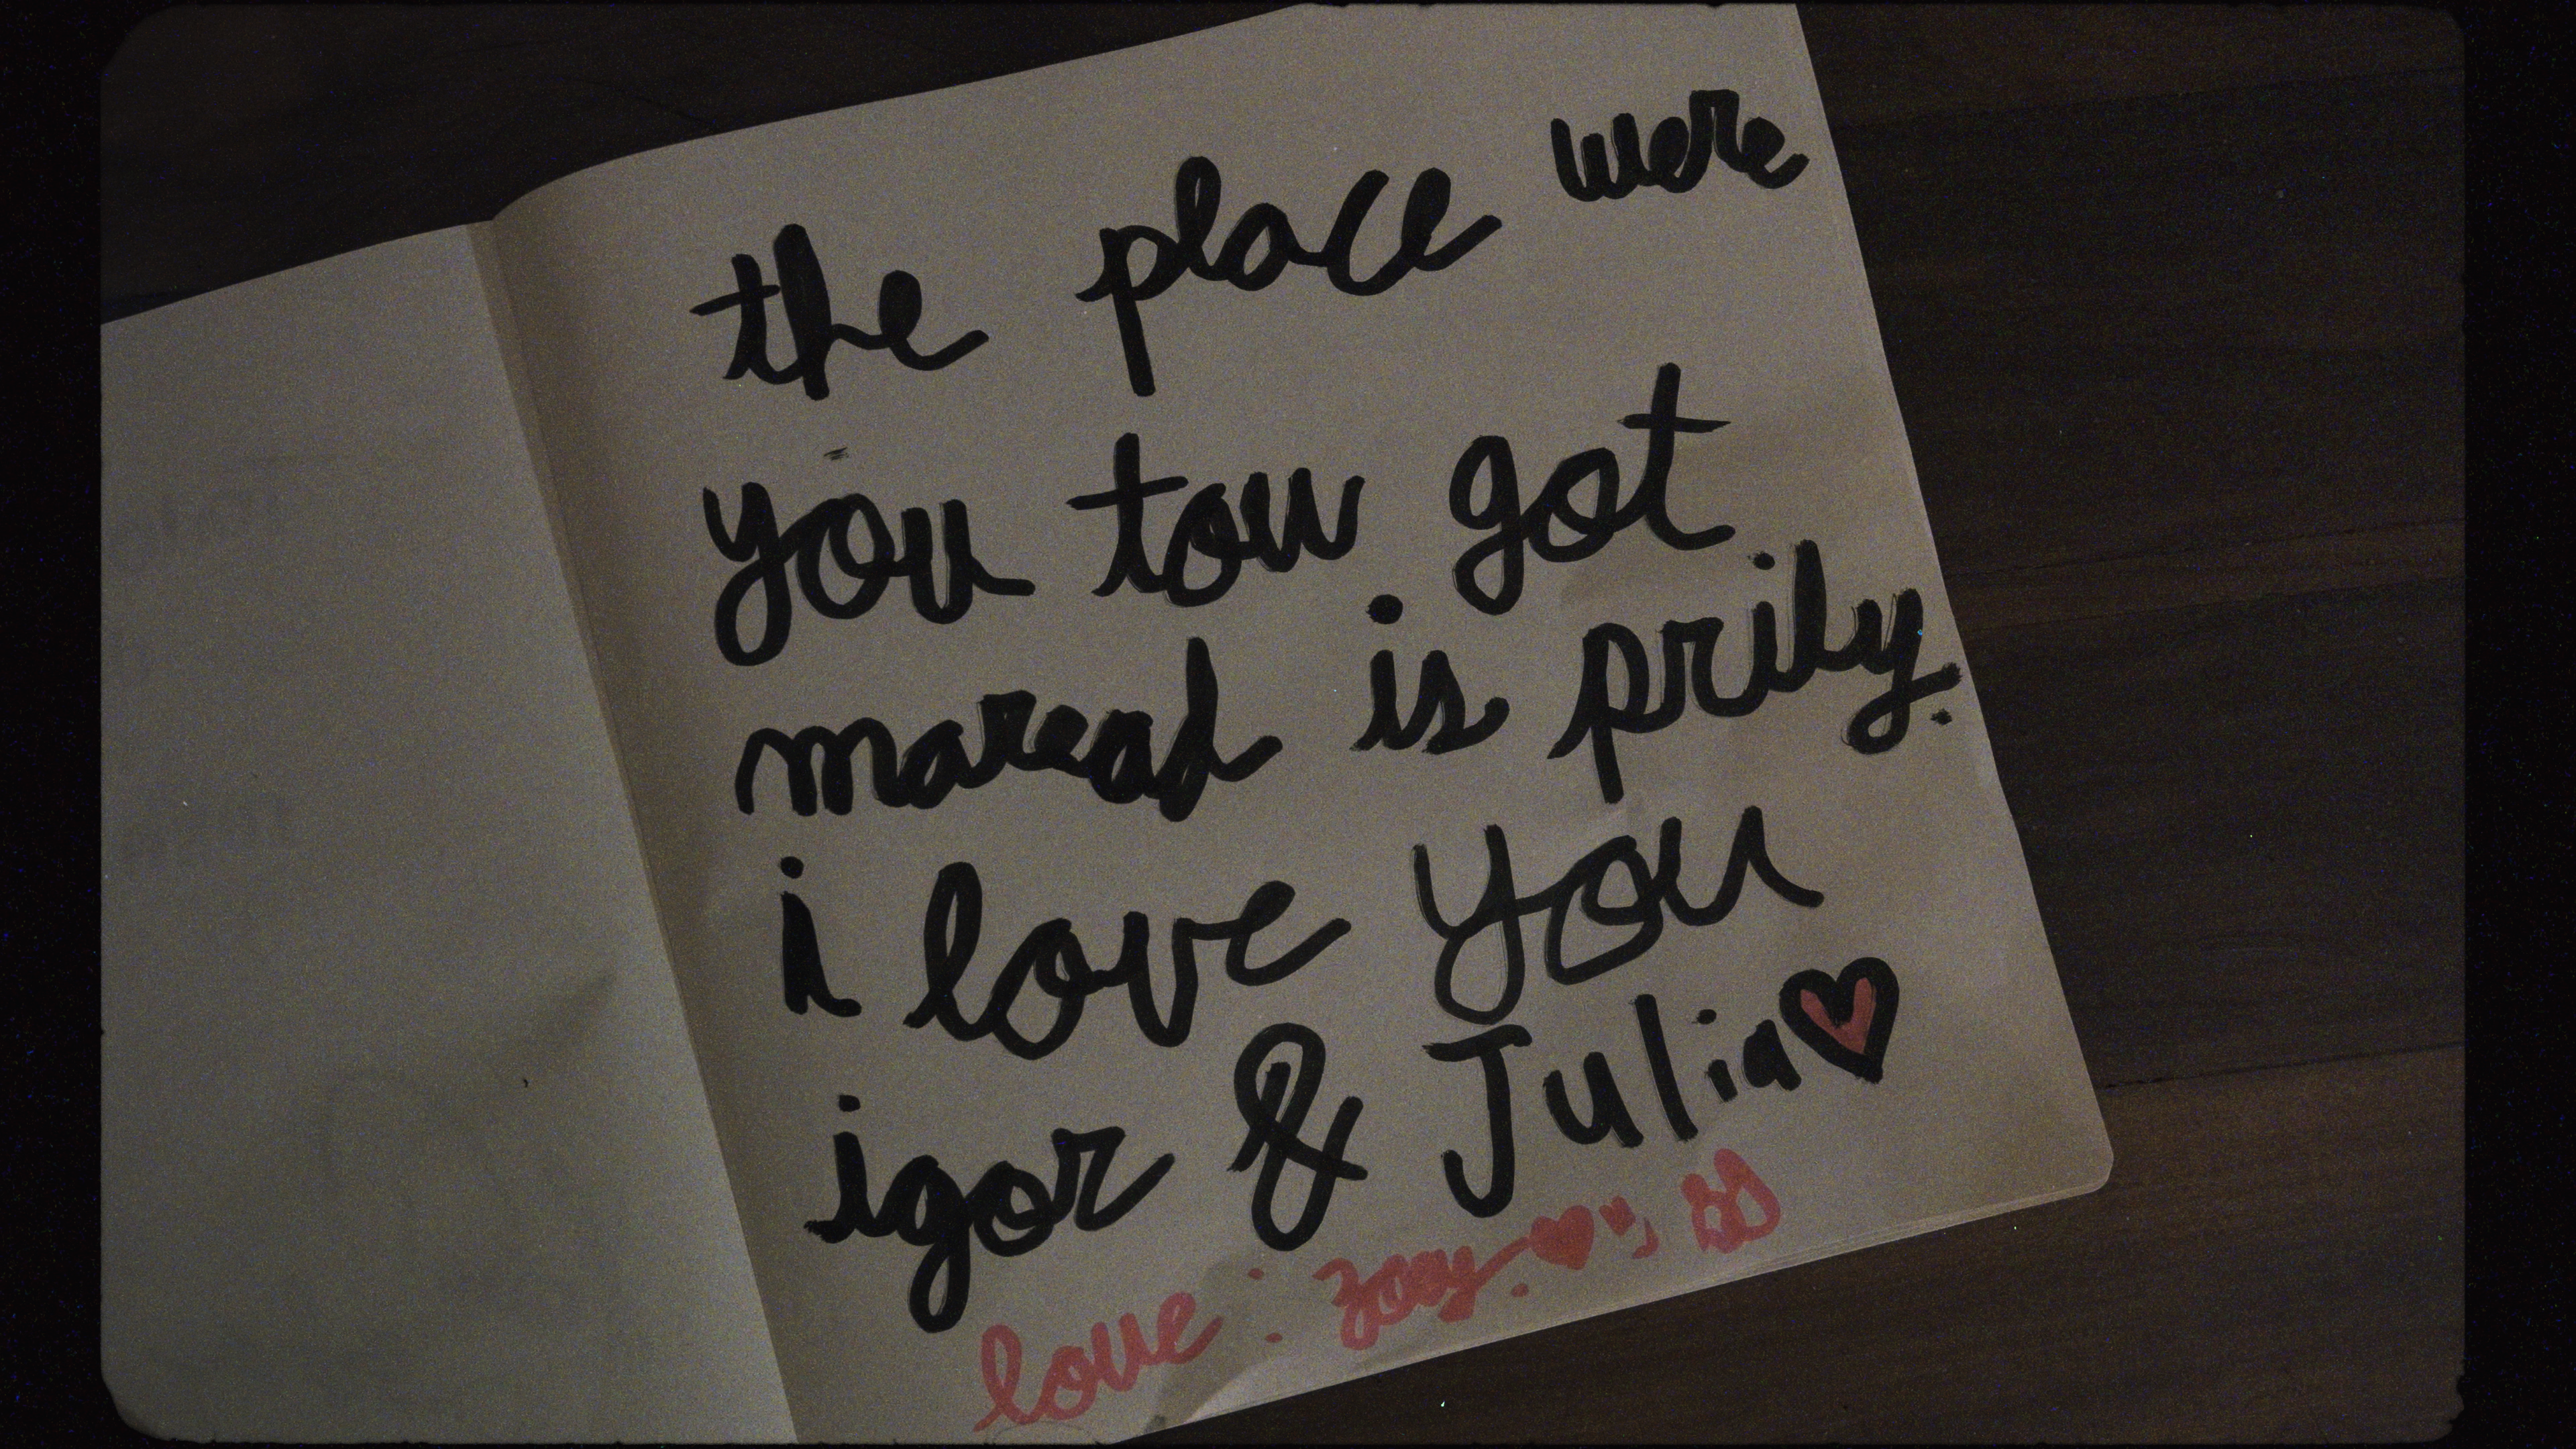 the place were
you tow got
maread is prily.
i love you
igor & Julia
love: zoey.